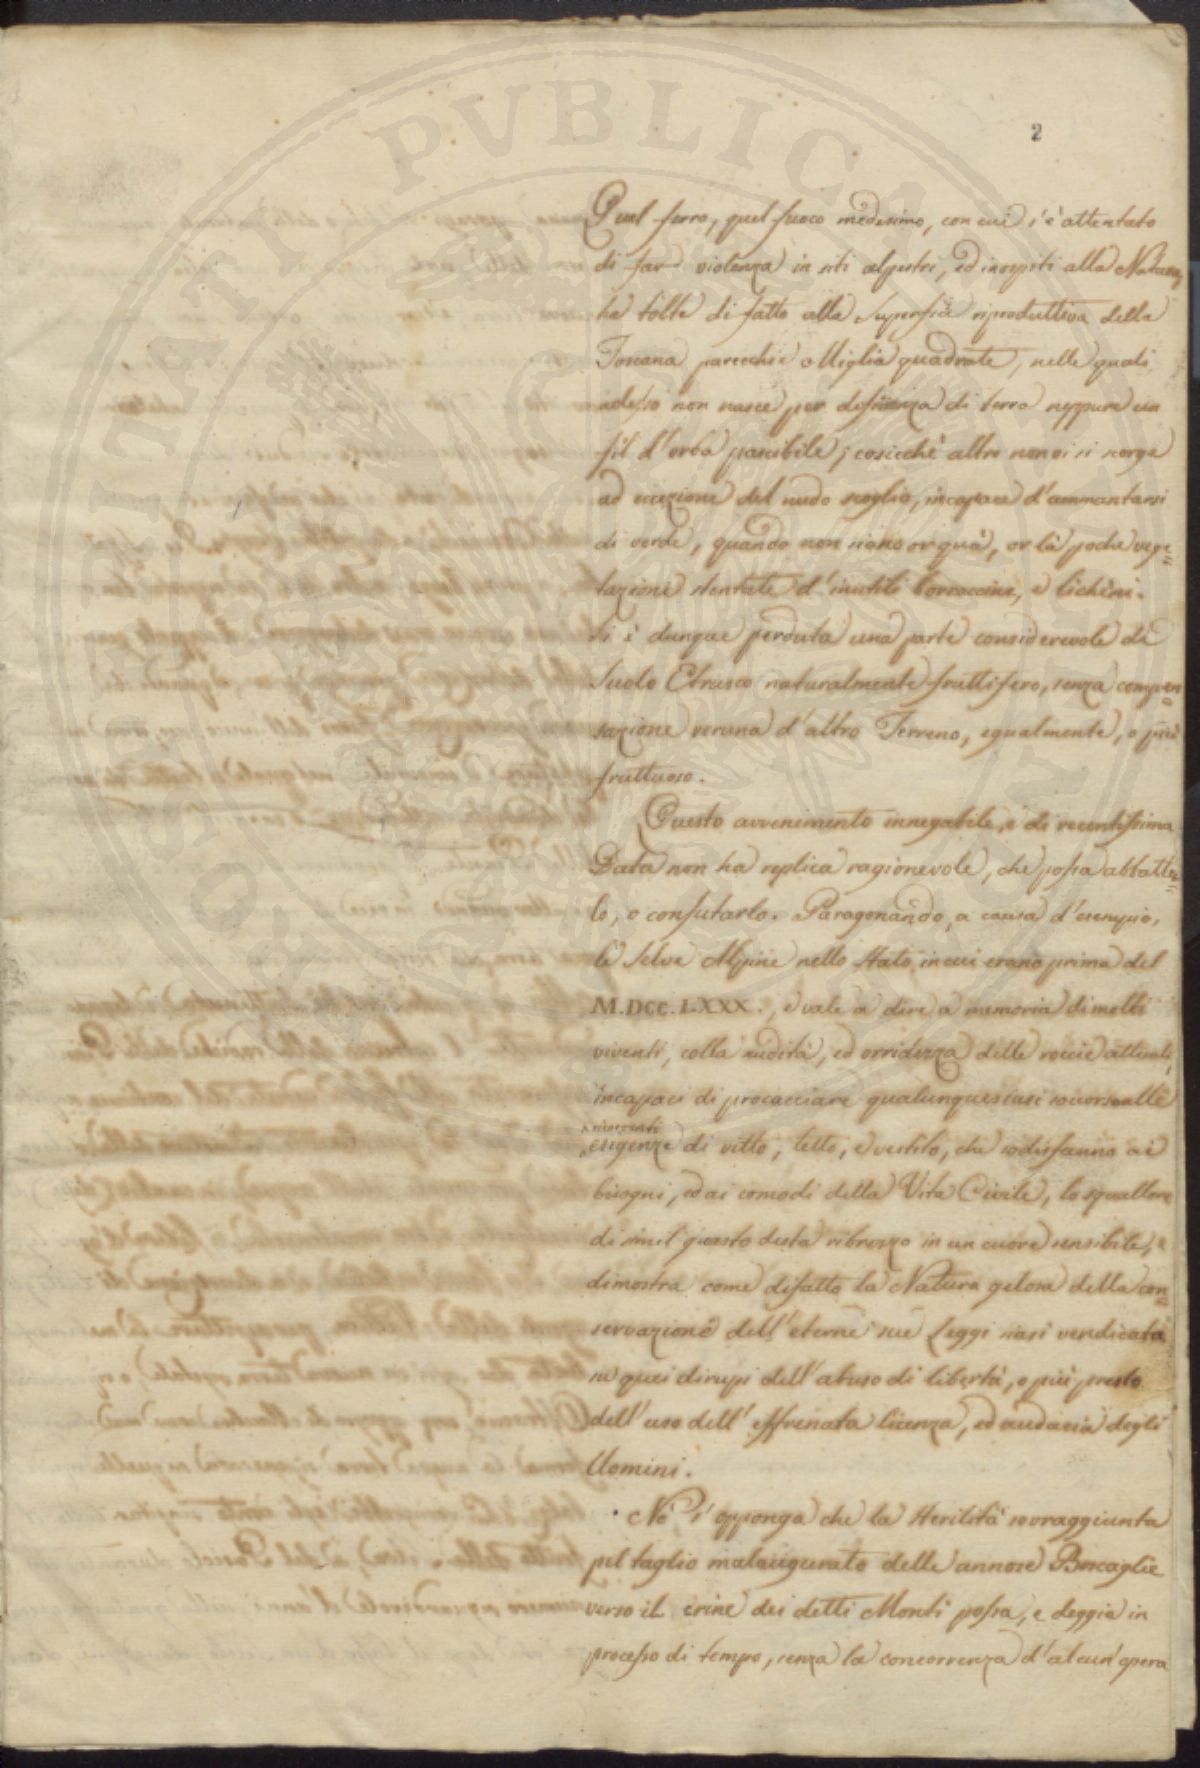 2
Quel ferro, quel fuoco medesimo, con cui s'è attentato
di far violenza in siti alpestri, ed inospiti alla Natura,
ha tolte di fatto alla superficie riproduttiva della
Toscana parecchie Miglia quadrate, nelle quali
adesso non nasce per deficienza di terra neppure un
fil d'erba pascibile; cosicchè altro non vi si scorge
ad eccezione del nudo scoglio, incapace d'ammantarsi
di verde, quando non siano or quà, or là poche vege=
tazioni stentate d'inutili borraccine, e licheni.
Si è dunque perduta una parte considerevole di
Suolo Etrusco naturalmente fruttifero, senza compen=
sazione veruna d'altro Terreno, egualmente, o più
fruttuoso.
Questo avvenimento innegabile, e di recentissima
Data non ha replica ragionevole, che possa abbatter=
lo, o confutarlo. Paragonando, a causa d'esempio,
le Selve Alpine nello stato, in cui erano prima del
M.DCC.LXXX., e vale a dire a memoria di molti
viventi, colla nudità, ed orridezza delle roccie attuali,
incapaci di procacciare qualunquesiasi soccorso alle
esigenze di vitto, tetto, e vestito, che sodisfanno ai
bisogni, ed ai comodi della Vita Civile, lo squallore
di simil guasto desta ribrezzo in un cuore sensibile, e
dimostra come difatto la Natura gelosa della con=
servazione dell'eterne sue Leggi siasi vendicata
ne' quei dirupi dell'abuso di libertà, o più presto
dell'uso dell'effrenata licenza, ed audacia degli
Uomini.
Nè s'opponga che la sterilità sovraggiunta
pel taglio malaugurato delle annose Boscaglie
verso il crine dei detti Monti possa, e deggia in
processo di tempo, senza la concorrenza d'alcun'opera
PVBLICA